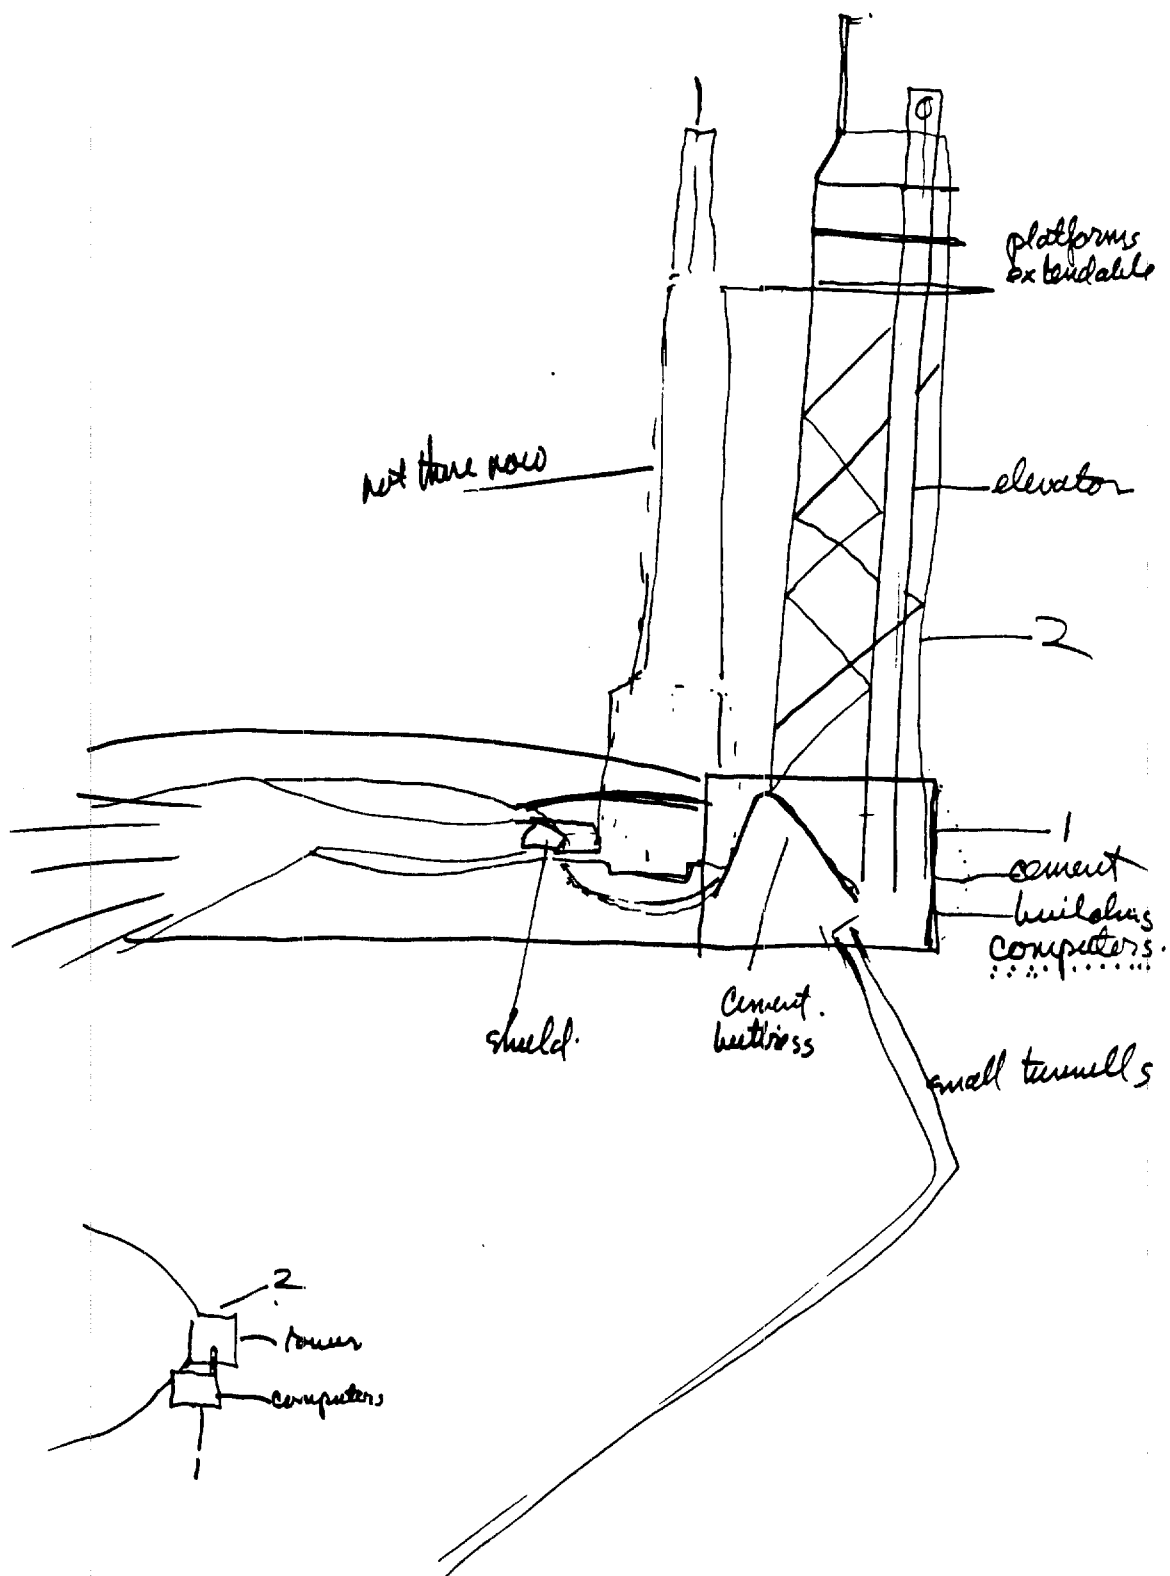 platforms
extendable
not there now
elevator
2
1
cement
building
computers.
shield.
Cement.
buttress
small tunnells
2
tower
computers
1